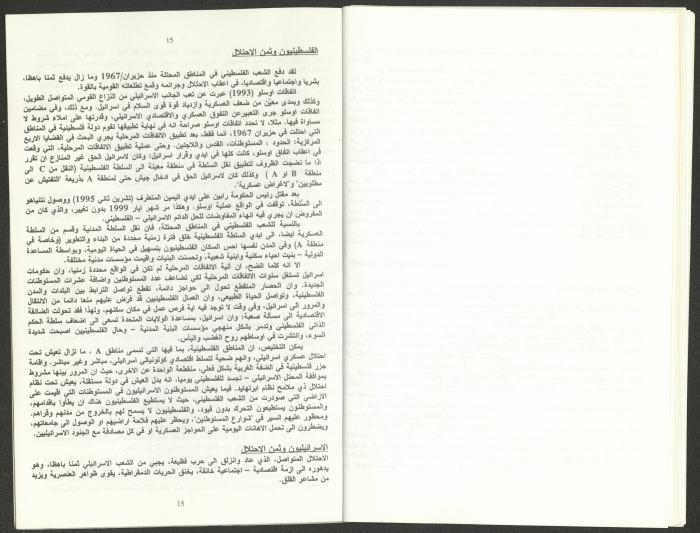 15
الفلسطينيون وثمن الاحتلال
لقد دفع الشعب الفلسطيني في المناطق المحتلة منذ حزيران/1967 وما زال يدفع ثمنا باهظا،
بشريا واجتماعيا واقتصاديا، في اعقاب الاحتلال وجرائمه وقمع تطلعاته القومية بالقوة.
اتفاقات اوسلو (1993) عبرت عن تعب الجانب الاسرائيلي من النزاع القومي المتواصل الطويل،
وكذلك وبمدى معين من ضعف العسكرية وازدياد قوة قوى السلام في اسرائيل. ومع ذلك، وفي مضامين
اتفاقات اوسلو جرى التعبير عن التفوق العسكري والاقتصادي الاسرائيلي، وقدرتها على املاء شروط لا
مساواة فيها. مثلا، لا تحدد اتفاقات اوسلو صراحة انه في نهاية تطبيقها تقوم دولة فلسطينية في المناطق
التي احتلت في حزيران 1967، انما فقط، بعد تطبيق الاتفاقات المرحلية يجري البحث في القضايا الاربع
المركزية: الحدود ، المستوطنات، القدس واللاجئين. وحتى عملية تطبيق الاتفاقات المرحلية، التي وقعت
في اعقاب اتفاق اوسلو، كانت كلها في ايدي وقرار اسرائيل: وكان لاسرائيل الحق غير المنازع ان تقرر
اذا ما نضجت الظروف لتطبيق نقل السلطة في منطقة معينة الى السلطة الفلسطينية (النقل من C الى
منطقة B او A ) وكذلك كان لاسرائيل الحق في ادخال جيش حتى لمنطقة A بذريعة "التفتيش عن
مطلوبين" و"لاغراض عسكرية".
بعد مقتل رئيس الحكومة رابين على ايدي اليمين المتطرف (تشرين ثاني 1995) ووصول نتنياهو
الى السلطة، توقفت في الواقع عملية اوسلو. وهكذا مر شهر ايار 1999 بدون تغيير، والذي كان من
المفروض ان يجري فيه انهاء المفاوضات للحل الدائم الاسرائيلي – الفلسطيني.
بالنسبة للشعب الفلسطيني في المناطق المحتلة، فان نقل السلطة المدنية وقسم من السلطة
العسكرية ايضا، الى ايدي السلطة الفلسطينية خلق فترة زمنية محددة من البناء والتطوير (وخاصة في
منطقة A) وفي المدن نفسها احس السكان الفلسطينيون بتسهيل في الحياة اليومية، وبواسطة المساعدة
الدولية – بنيت احياء سكنية وابنية شعبية، وتحسنت البنيات واقيمت مؤسسات مدنية مختلفة.
الا انه كلما اتضح، ان آنية الاتفاقات المرحلية لم تكن في الواقع محددة زمنيا، وان حكومات
اسرائيل تستغل سنوات الاتفاقات المرحلية لكي تضاعف عدد المستوطنين واضافة عشرات المستوطنات
الجديدة. وان الحصار المتقطع تحول الى حواجز دائمة، تقطع تواصل الترابط بين البلدات والمدن
الفلسطينية، وتواصل الحياة الطبيعي، وان العمال الفلسطينيين قد فرض عليهم منعا دائما من الانتقال
والمرور الى اسرائيل، وفي وقت لا توجد فيه اية فرص عمل في مكان سكنهم، ولهذا فقد تحولت الضائقة
الاقتصادية الى مسألة صعبة: وان اسرائيل، بمساعدة الولايات المتحدة تسعى الى اضعاف سلطة الحكم
الذاتي الفلسطيني وتدمر بشكل منهجي مؤسسات البنية المدنية – وحال الفلسطينيين اصبحت شديدة
السوء، وانتشرت في اوساطهم روح الغضب واليأس.
يمكن التلخيص، ان المناطق الفلسطينية، بما فيها التي تسمى مناطق A ، ما تزال تعيش تحت
احتلال عسكري اسرائيلي، وانهم ضحية لتسلط اقتصادي كولونيالي اسرائيلي، مباشر وغير مباشر. واقامة
جزر فلسطينية في الضفة الغربية بشكل فعلي، منقطعة الواحدة عن الاخرى، حيث ان المرور بينها مشروط
بموافقة المحتل الاسرائيلي – تجسد للفلسطيني يوميا، انه بدل العيش في دولة مستقلة، يعيش تحت نظام
احتلال ذي ملامح نظام ابرتهايد. فيما يعيش المستوطنون الاسرائيليون في المستوطنات التي اقيمت على
الاراضي التي صودرت من الشعب الفلسطيني، حيث لا يستطيع الفلسطينيون هناك ان يطأوا باقدامهم،
والمستوطنون يستطيعون التحرك بدون قيود، والفلسطينيون لا يسمح لهم بالخروج من مدنهم وقراهم.
ومحظور عليهم السير في "شوارع المستوطنين"، ويحظر عليهم فلاحة اراضيهم او الوصول الى جامعاتهم،
ويضطرون الى تحمل الاهانات اليومية على الحواجز العسكرية او في كل مصادفة مع الجنود الاسرائيليين.
الاسرائيليون وثمن الاحتلال
الاحتلال المتواصل، الذي عاد وانزلق الى حرب فظيعة، يجبي من الشعب الاسرائيلي ثمنا باهظا، وهو
يدهوره الى ازمة اقتصادية – اجتماعية خانقة، يخنق الحريات الدمقراطية، يقوى ظواهر العنصرية ويزيد
من مشاعر القلق.
15